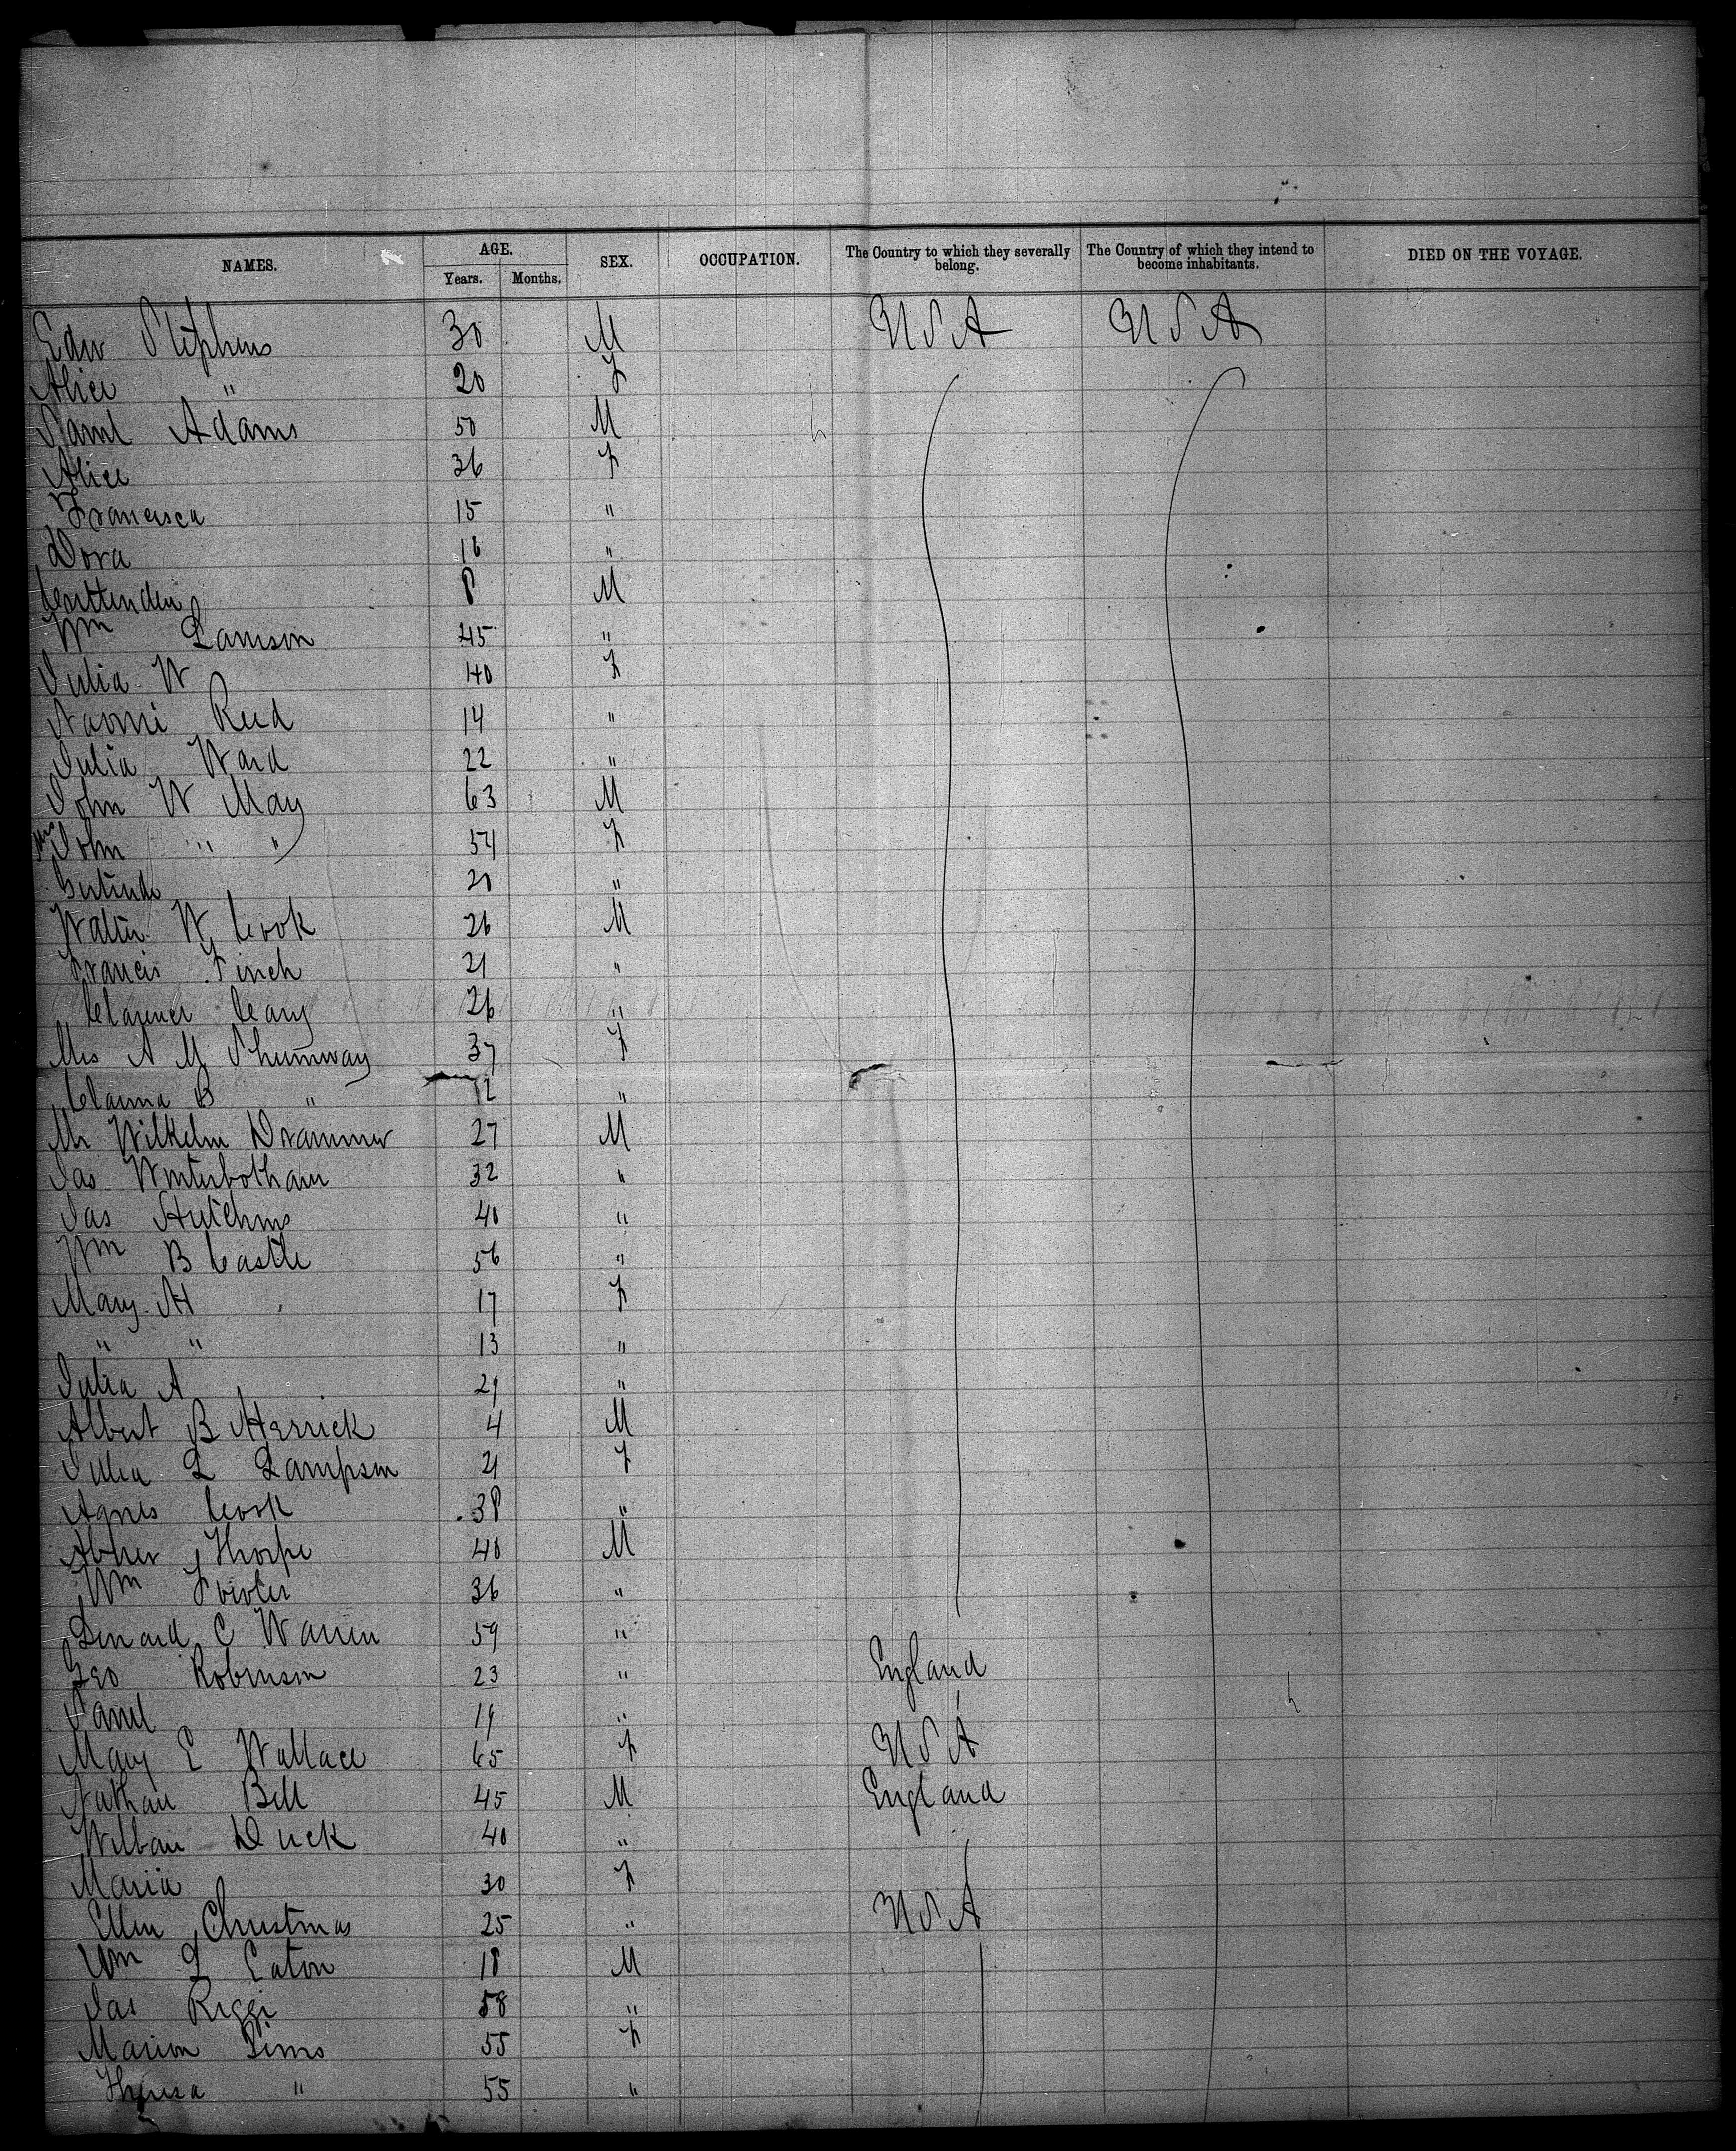 NAMES. AGE. Years. Months. SEX. OCCUPATION. The Country to which they severally belong. The Country of which they intend to become inhabitants. DIED ON THE VOYAGE.
Edw Stephens 30 M U S A U S A
Alice " 20 F
Saml Adams 50 M
Alice 36 F
Francisca 15 "
Dora 16 "
Crittenden 8 M
Wm Lamson 45 "
Julia W 40 F
Naomi Reed 14 "
Julia Ward 22 "
John W May 63 M
Mrs John " " 54 F
Gertrude 20 "
Walter W Cook 26 M
Francis Finch 21 "
Clarence Cary 26 "
Mrs A M Shumway 37 F
B " 12 "
Mr Wilhelm Drammer 27 M
Jas Winterbotham 32 "
Jas Hutchins 40 "
Wm B Castle 56 "
Mary H 17 F
" " 13 "
Julia A 29 "
Albert B Herrick 4 M
Julia L Lampson 21 F
Agnes Cook 38 "
Abner Thorpe 40 M
Wm Fowler 36 "
C Warren 59 "
Geo Robinson 23 " England
Saml 19 "
Mary E Wallace 65 F U S A
Nathan Bell 45 M England
Duck 40 "
Maria 30 F
Ellen Christmas 25 " U S A
Wm L Eaton 18 M
Jas 58 "
Marion Sims 55 F
Theresa " 55 "